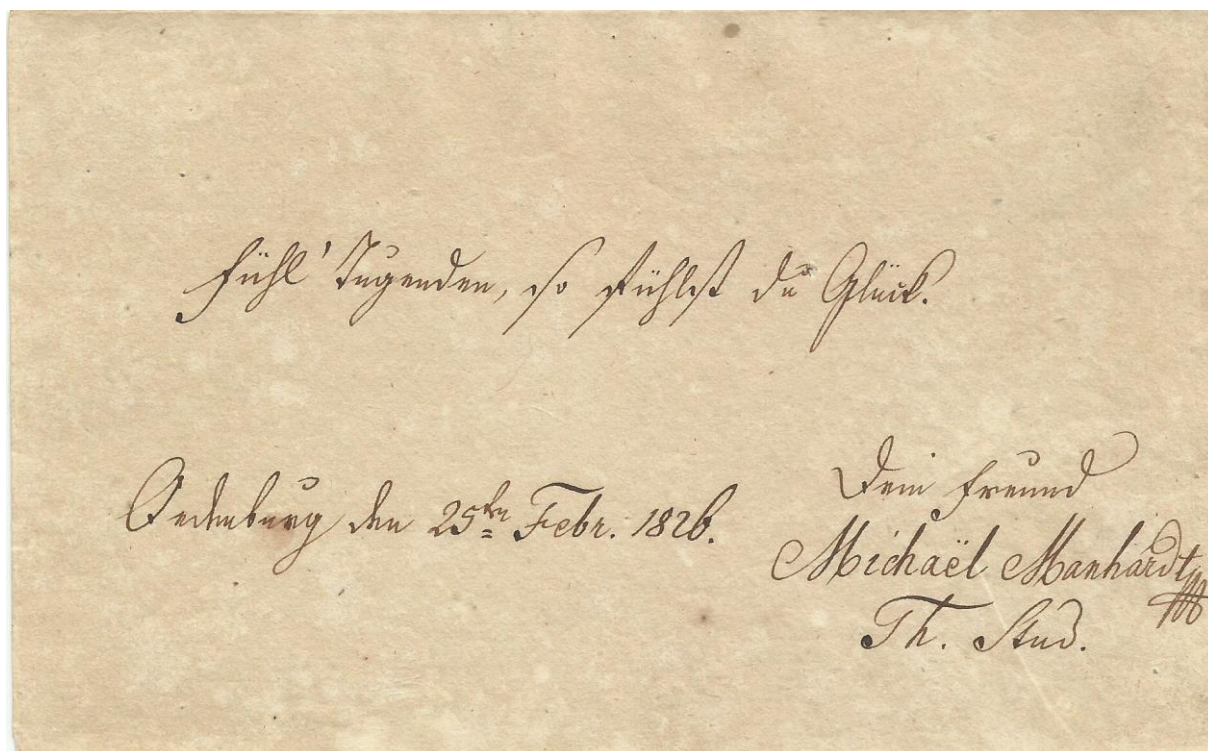 Fühl' Tugenden, so fühlst du Glück.
Oedenburg den 25ten Febr. 1826.
Dein Freund
Michaël Manhardt
Th. Stud.